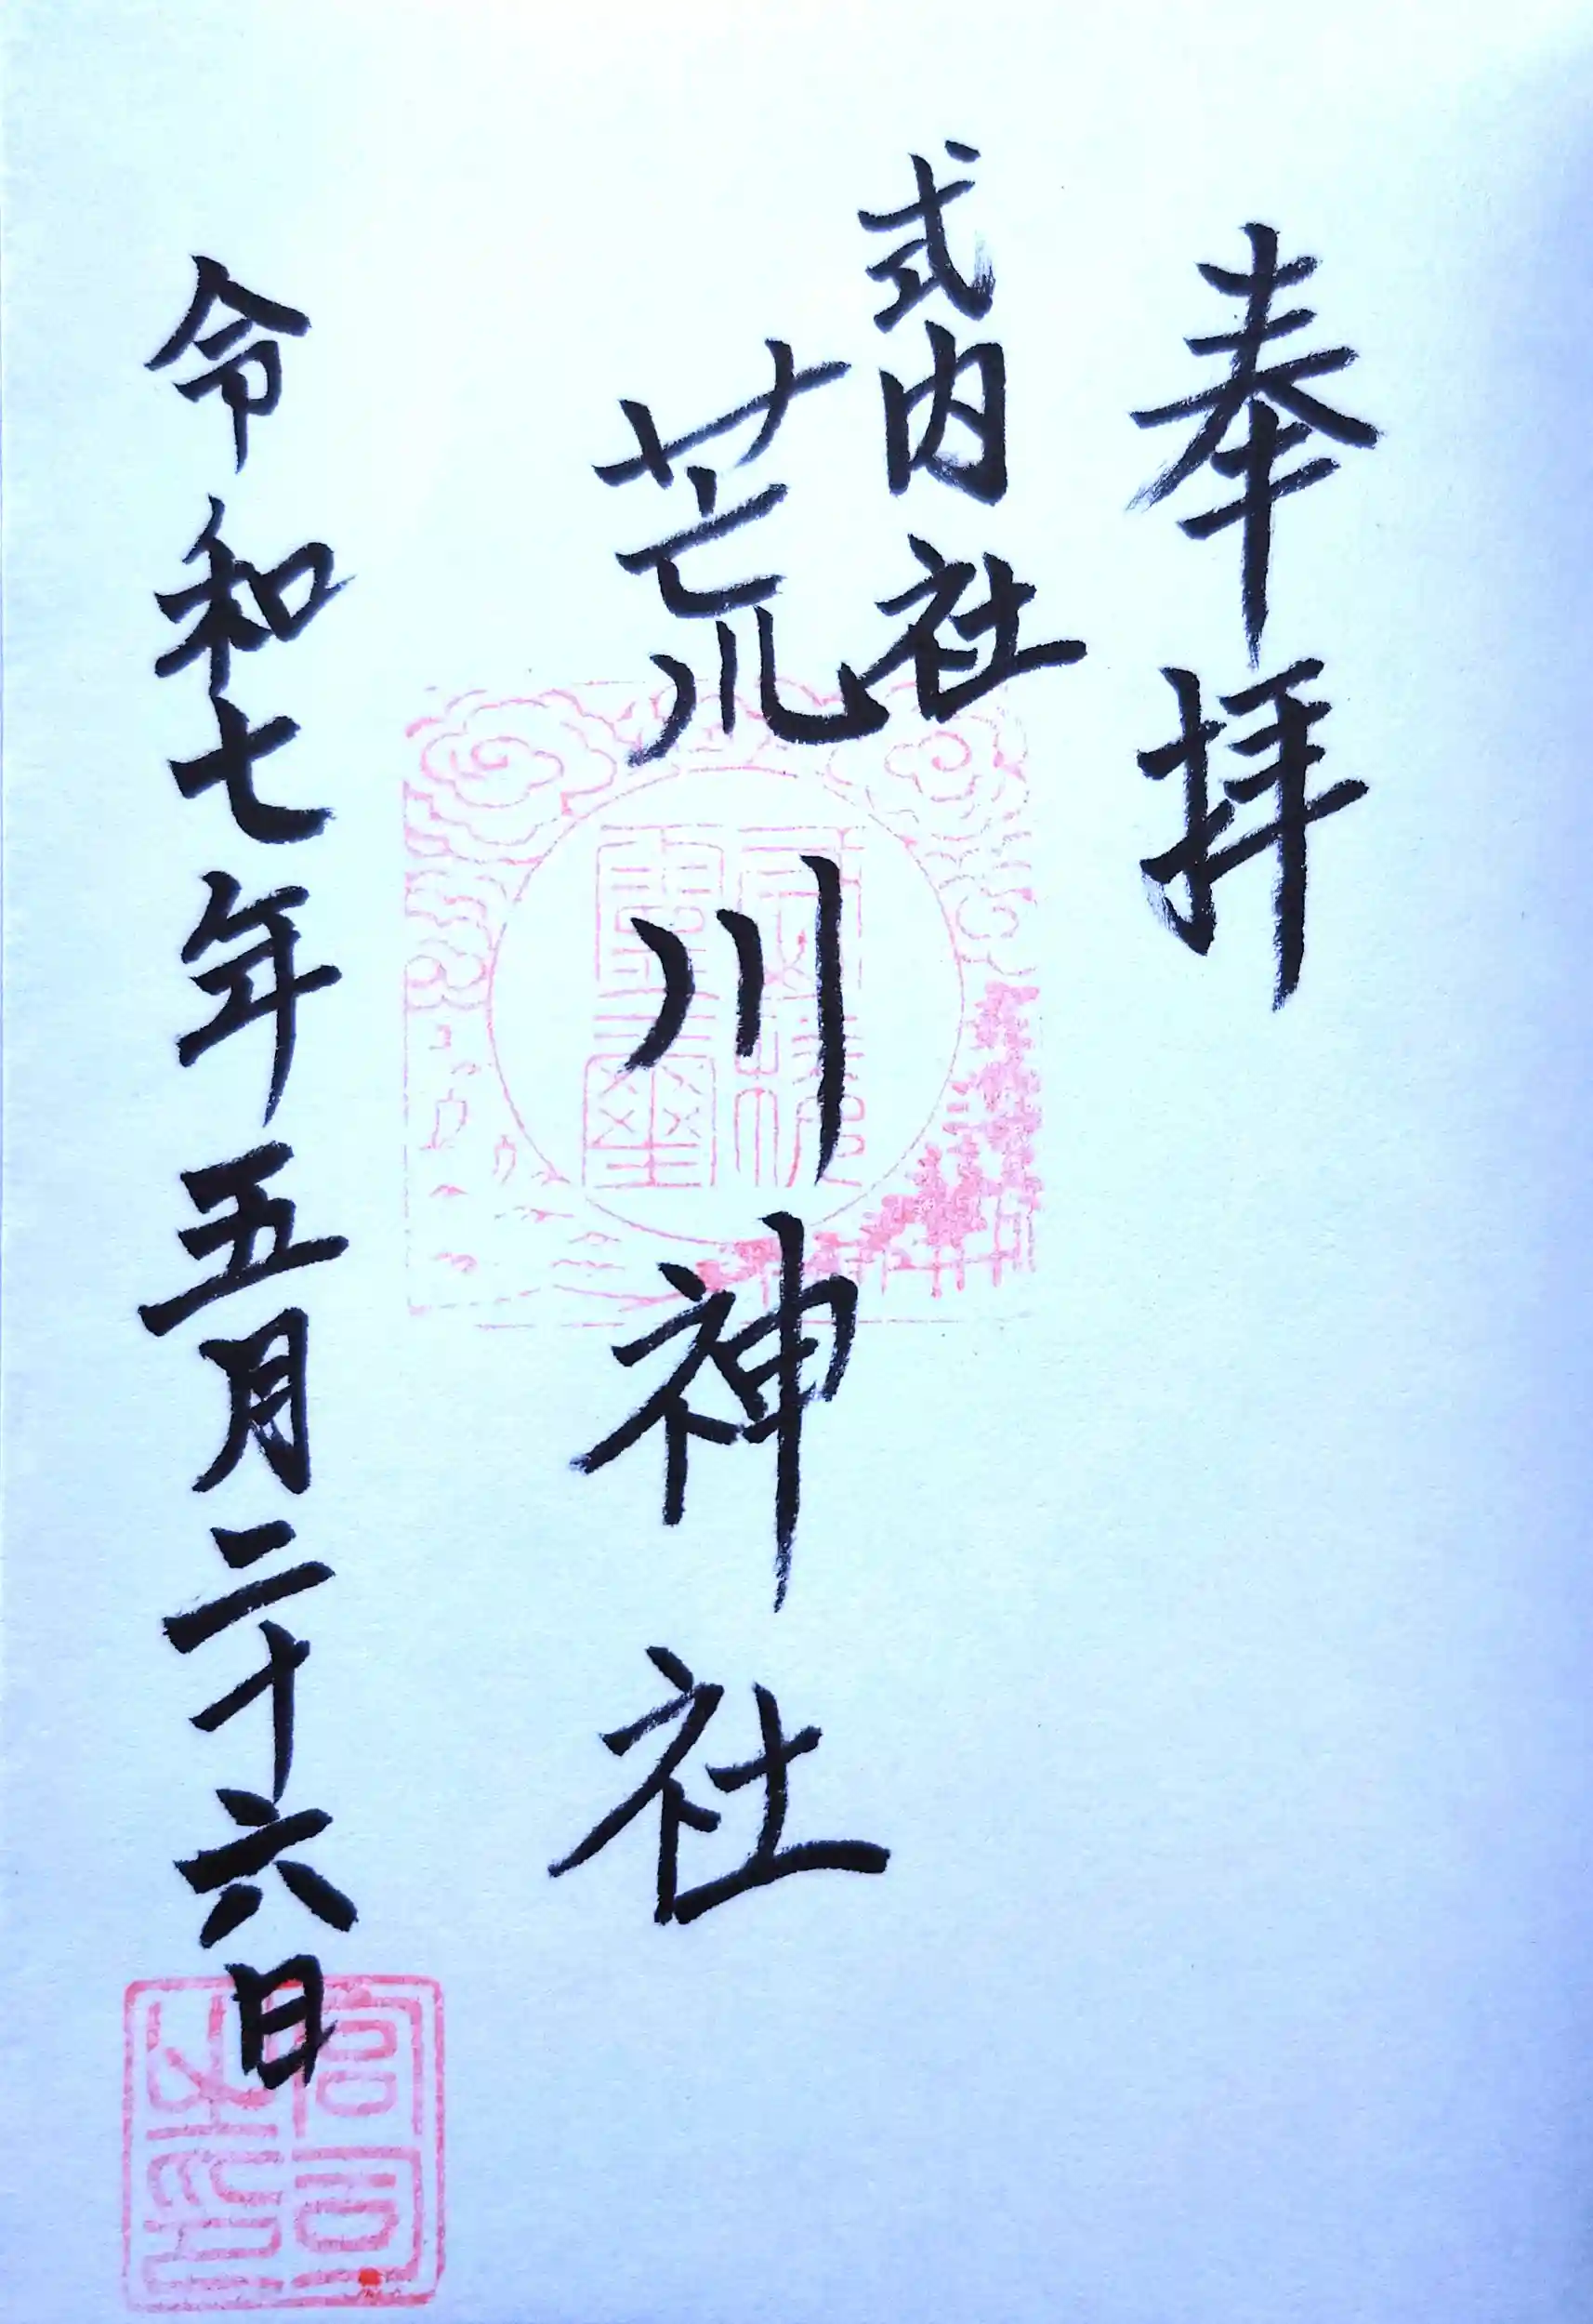 奉拝
式内社
荒川神社
令和七年五月二十六日
宮司之印